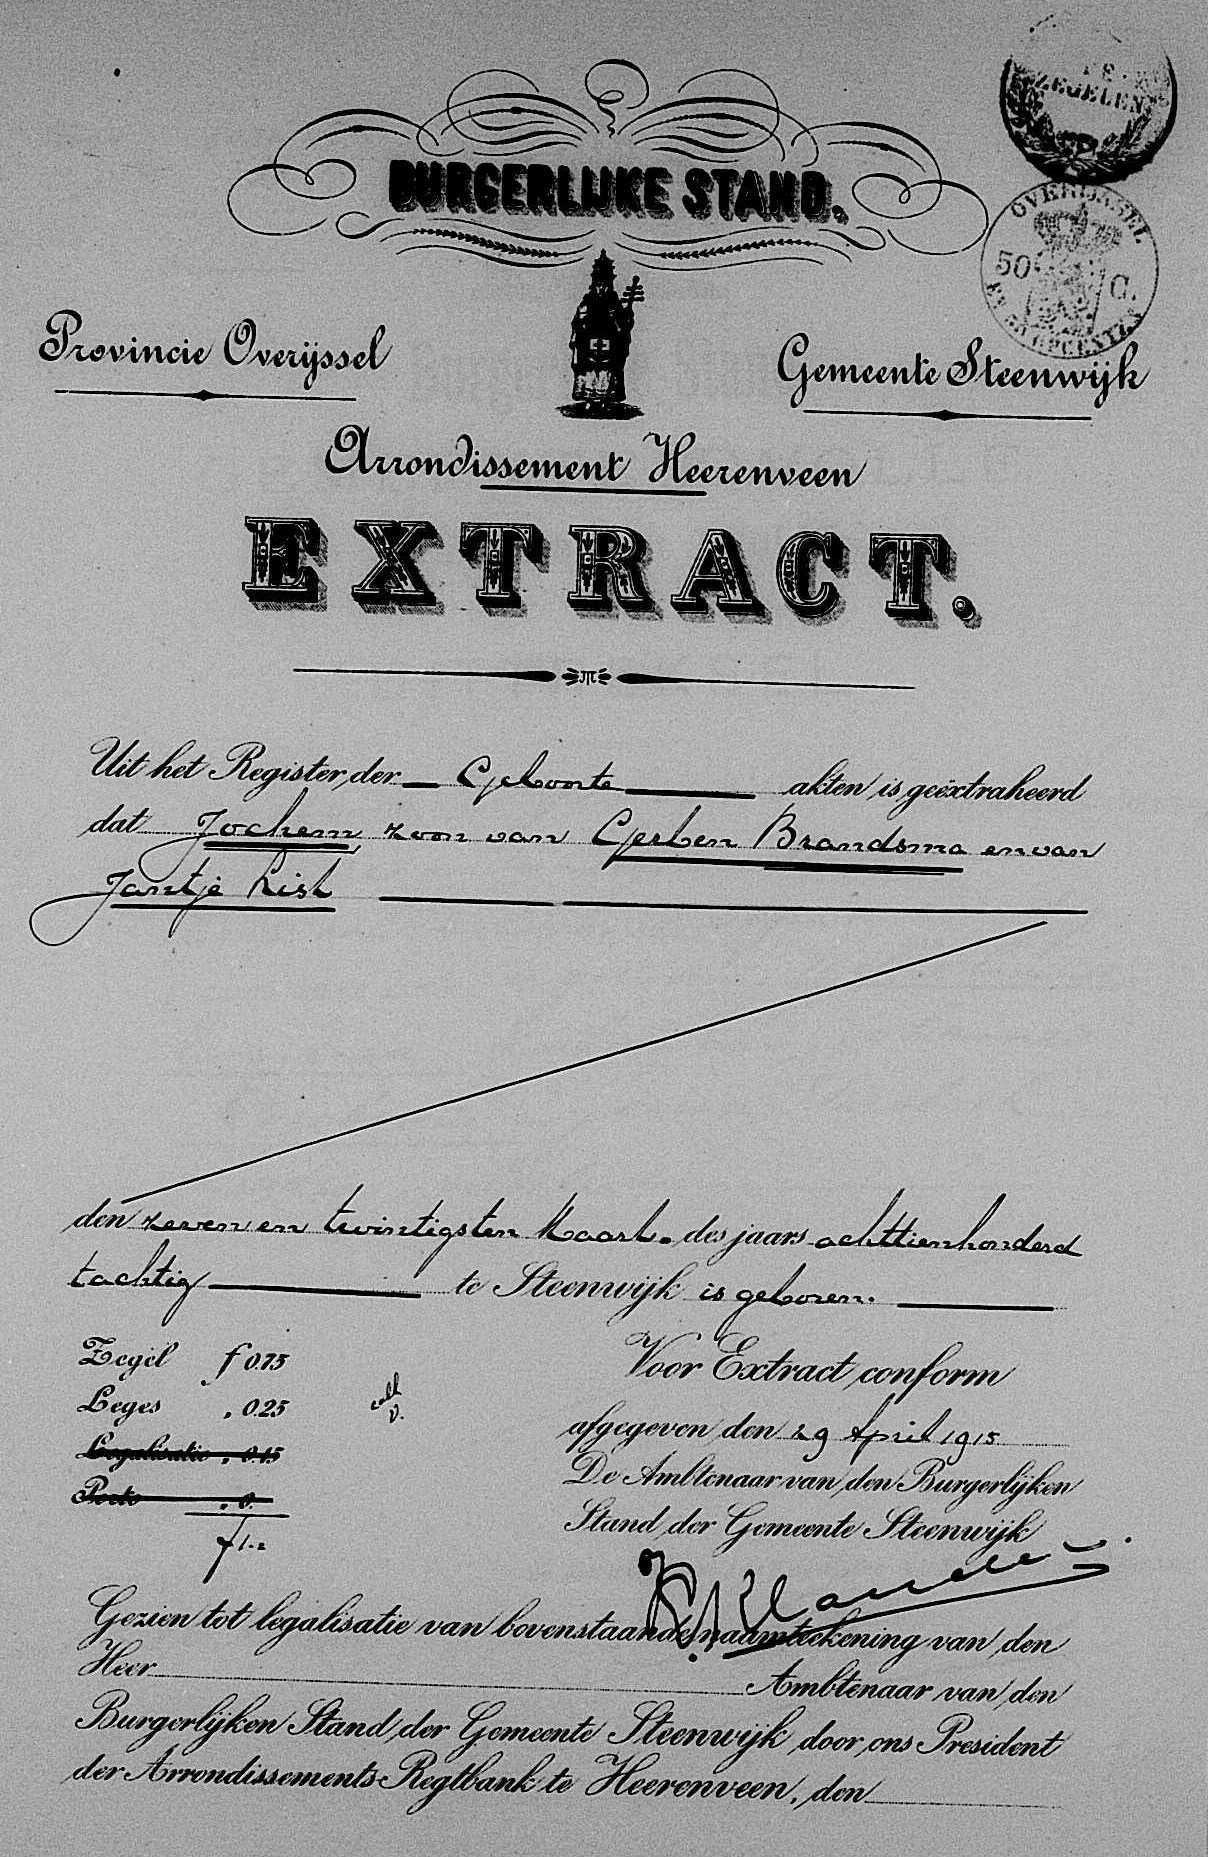 ZEGELEN
BURGERLIJKE STAND.
OVERIJSSEL
50 C.
Provincie Overijssel
Gemeente Steenwijk
Arrondissement Heerenveen
EXTRACT.
Uit het Register der Geboorte akten is geëxtraheerd
dat Jochem, zoon van Gerben Brandsma en van
Jantje List
den zeven en twintigsten Maart des jaars achttienhonderd
tachtig te Steenwijk is geboren.
Zegel f 0.75
Leges „ 0.25
Legalisatie „ 0.15
Porto „ 0.
f 1.-
Voor Extract conform
afgegeven den 29 April 1915
De Ambtenaar van den Burgerlijken
Stand der Gemeente Steenwijk
Gezien tot legalisatie van bovenstaande naamteekening van den
Heer Ambtenaar van den
Burgerlijken Stand der Gemeente Steenwijk door ons President
der Arrondissements-Regtbank te Heerenveen, den